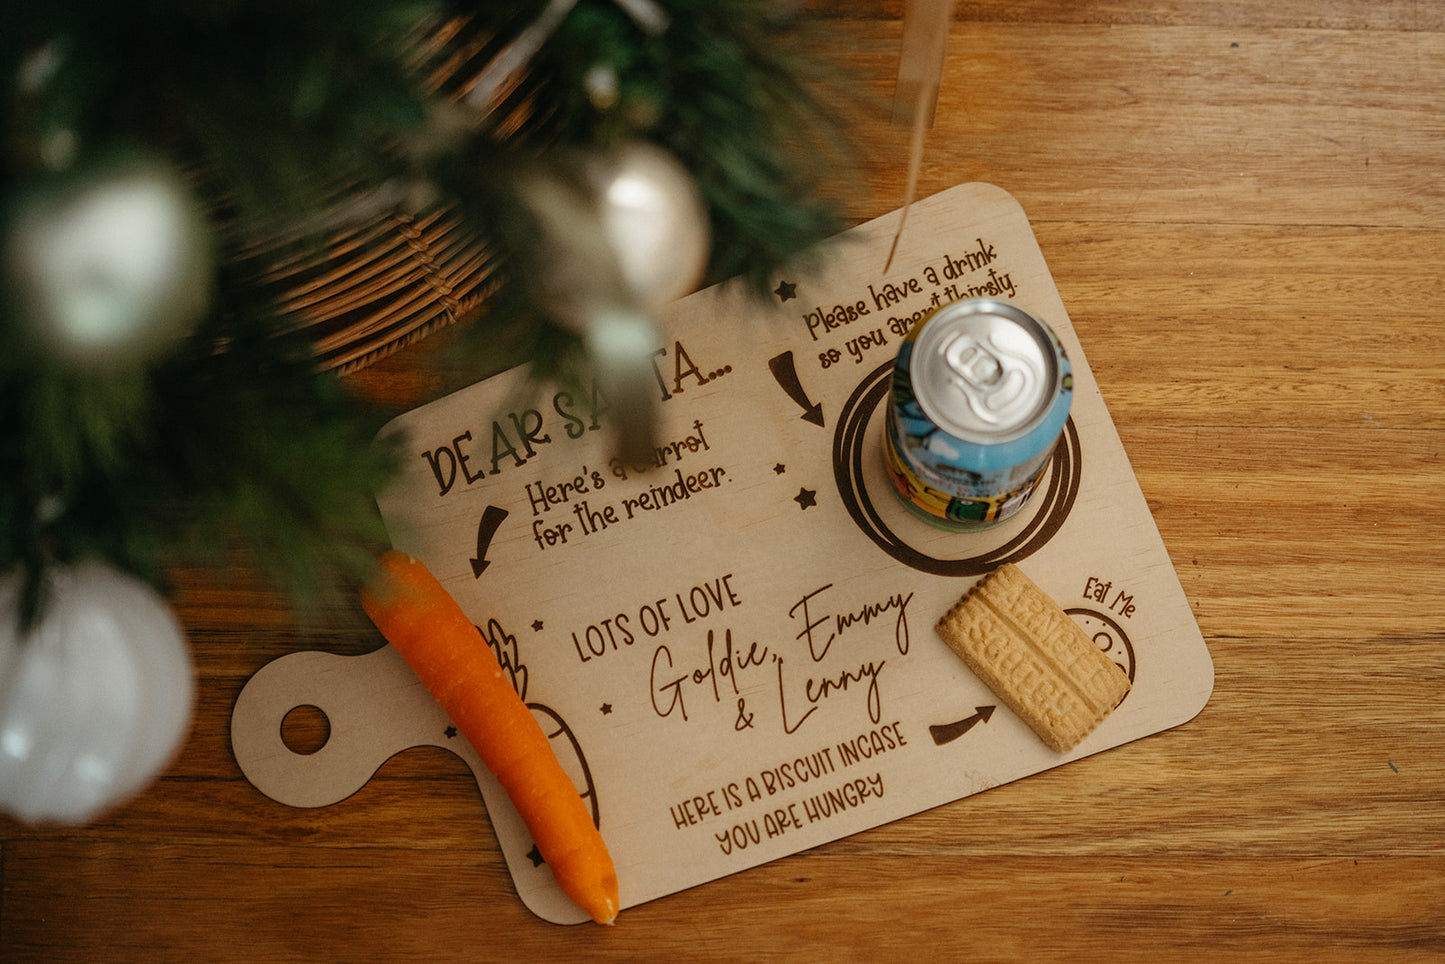 DEAR SANTA...
Here's a carrot
for the reindeer.
Please have a drink
so you aren't thirsty.
LOTS OF LOVE
Goldie, Emmy
& Lenny
Eat Me
ARNOTT'S
SCOTCH
FINGER
HERE IS A BISCUIT INCASE
YOU ARE HUNGRY